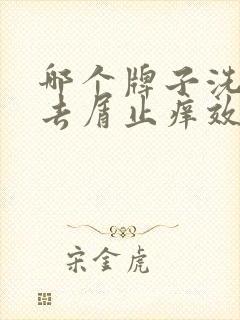 哪个牌子洗
去屑止痒效
宋金虎